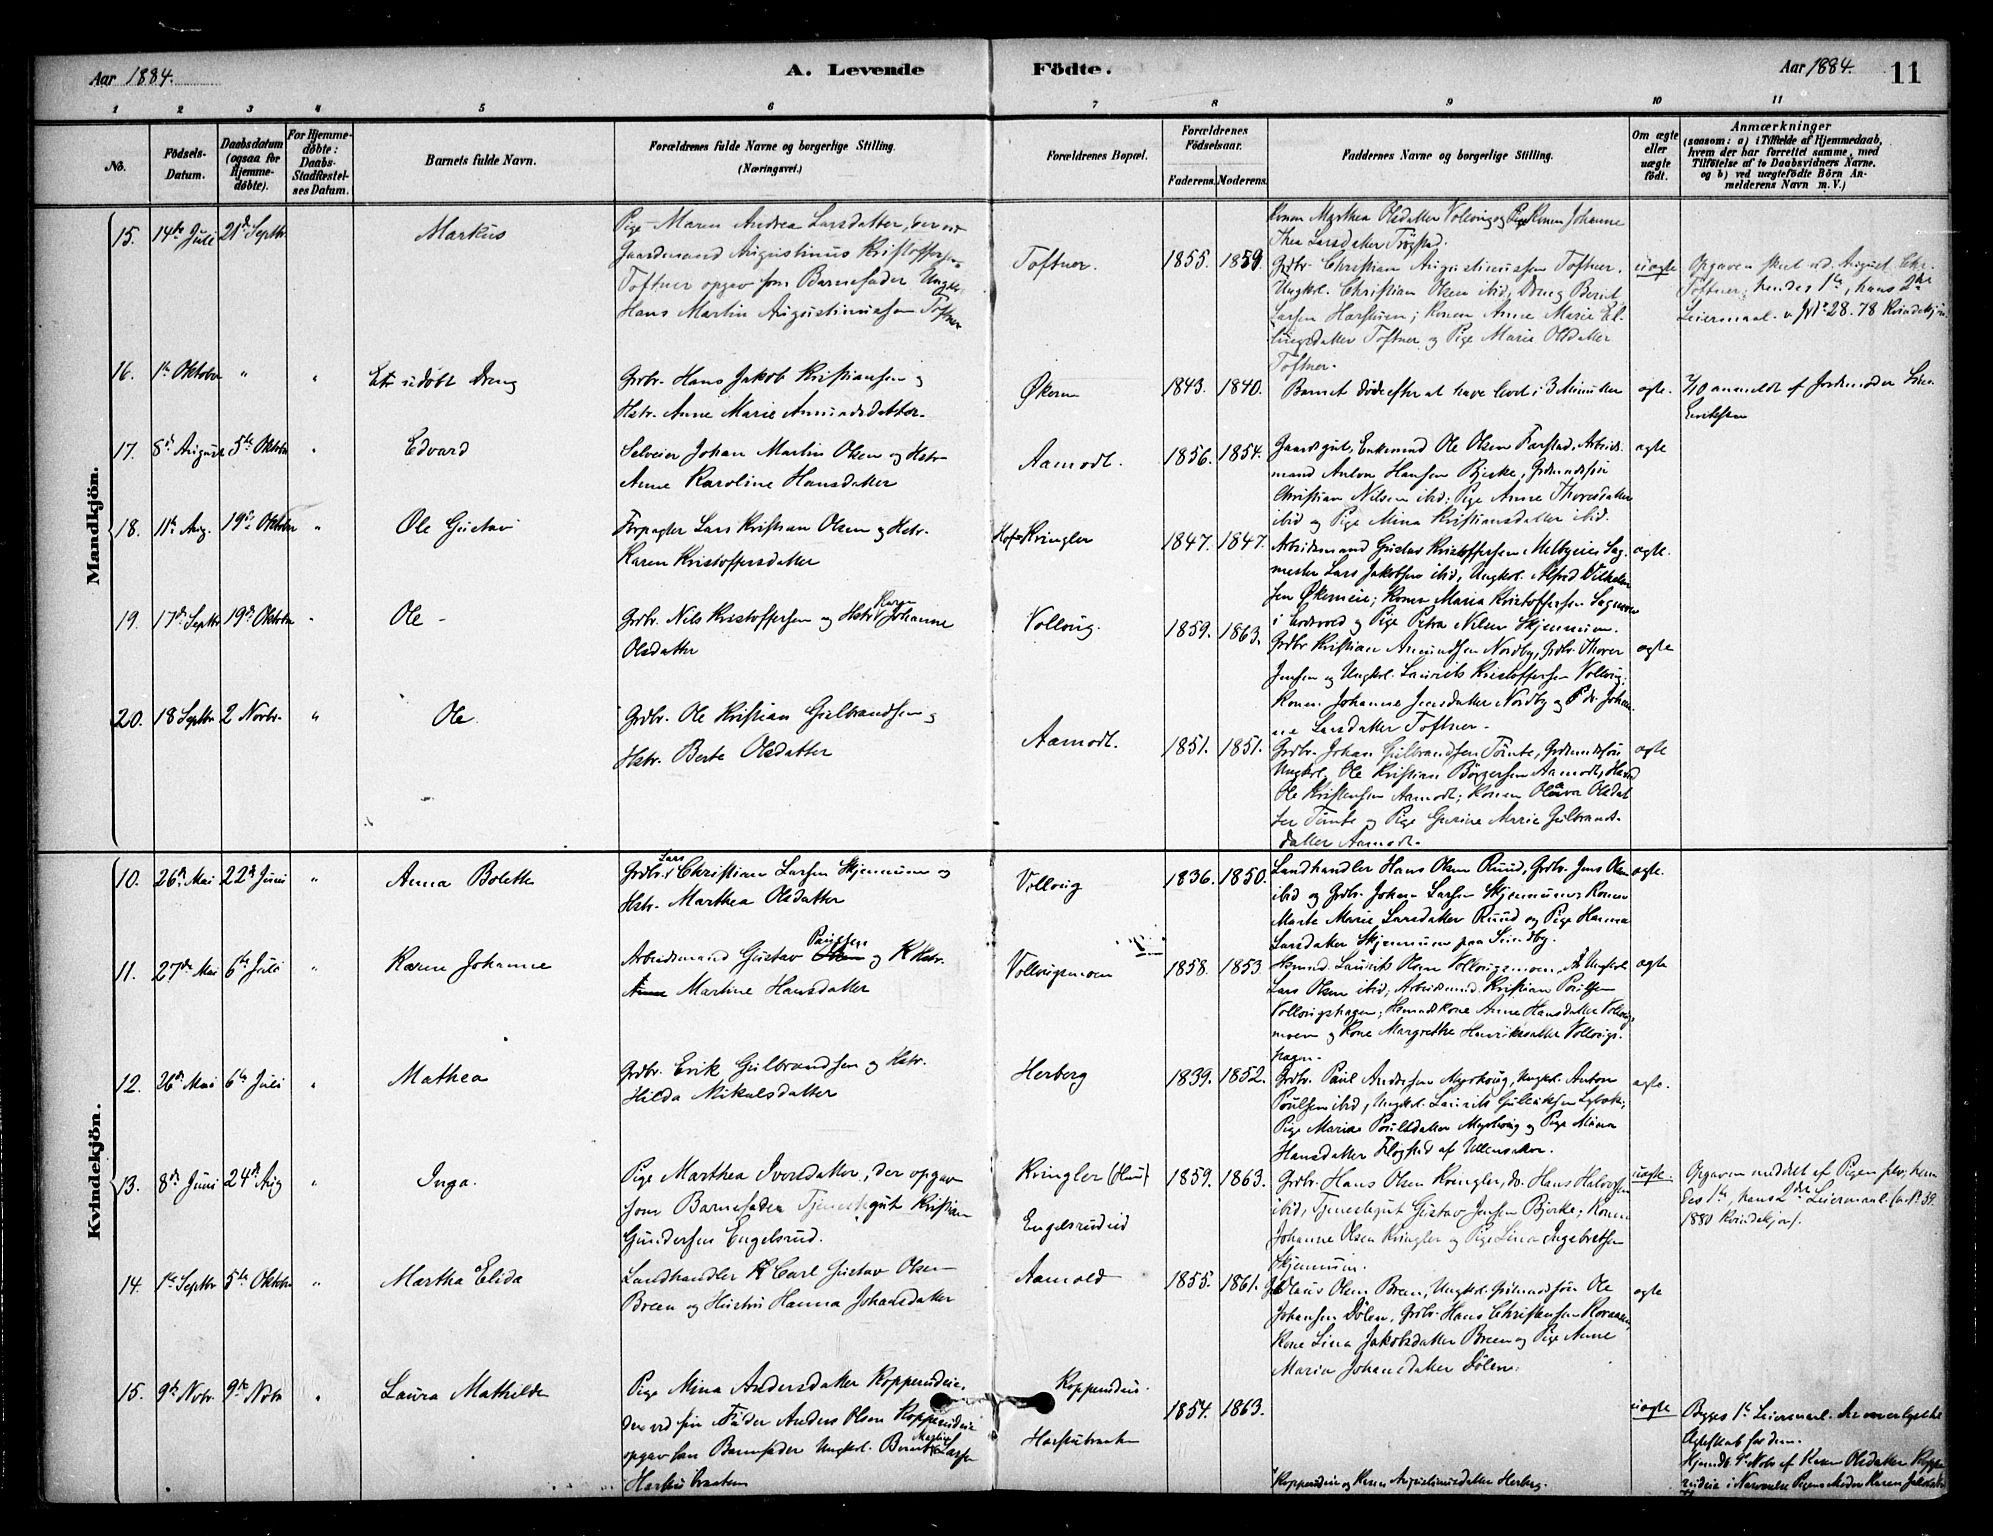 Aar 1884.
A. Levende Födte.
Aar 1884.
11
1 2 3 4 5 6 7 8 9 10 11
No.
Födsels-Datum.
Daabsdatum (ogsaa for Hjemme-döbte).
For Hjemme-döbte: Daabs-Stadfæstel-ses Datum.
Barnets fulde Navn.
Forældrenes fulde Navne og borgerlige Stilling.
(Næringsvei.)
Forældrenes Bopæl.
Forældrenes Födselsaar.
Faderens. Moderens.
Faddernes Navne og borgerlige Stilling.
Om ægte eller uægte födt.
Anmærkninger
(saasom: a) i Tilfælde af Hjemmedaab,
hvem der har forrettet samme, med
Tilföielse af to Daabsvidners Navne.
og b) ved uægtefödte Börn An-
melderens Navn m. V.)
Mandkjön.
15. 14de Juli 21de Septbr. Markus
Pige Maren Andrea Larsdatter, der ved
Gaardmand Augustinus Kristoffersen
Toftner opgav som Barnefader Ungkr.
Hans Martin Augustinussen Toftner
Toftner. 1855. 1859.
Konen Marthea Olsdatter Vollaug og Konen Johanne
Thea Larsdatter
Grdbr. Christian Augustinussen Toftner,
Ungkrl. Christian Olsen ibid, Dreng Bernt
Larsen Harstuen; Konen Anne Marie El-
lingsdatter Toftner og Pige Marie Olsdatter
Toftner.
uægte
Opgaven skeet ved August. Chr.
Toftner, hendes 1ste, hans 2det
Leiermaal. v. No 28. 78 Kvindekjön.
16. 1ste Oktober " " Et udöbt Dreng
Grdbr. Hans Jakob Kristiansen og
Hstr. Anne Marie Amundsdatter.
Økern 1843. 1840.
Barnet döde efter at have levet i 3 Minutter
ægte.
2/10 anmeldt af Jordmoder
17. 8de August 5te Oktober " Edvard
Selveier Johan Martin Olsen og Hstr.
Anne Karoline Hansdatter
Aamodt. 1856. 1854.
Gaardsgut, Enkemand Ole Olsen Farstad, Arbeids-
mand Anton Hansen Bjerke, Grdmandssön
Christian Nilsen ibid; Pige Anne Thoresdatter
ibid og Pige Mina Kristiansdatter ibid.
ægte
18. 11te Aug. 19de Oktober " Ole Gustav
Forpagter Lars Kristian Olsen og Hstr.
Karen Kristoffersdatter
Kringler 1847. 1847.
Arbeidsmand Gustav Kristoffersen Melbyeie, Sag-
mester Lars Jakobsen ibid, Ungkrl. Alfred Vilhelm-
sen Økerneie; Konen Maria Kristoffersen
i Eidsvold og Pige Petra Nilsen Skjennum.
ægte.
19. 17de Septbr 19de Oktober " Ole
Grdbr. Nils Kristoffersen og Hstr. Karen Johanne
Olsdatter
Vollaug. 1859. 1863.
Grdbr Kristian Amundsen Nordby, Grdbr. Thorer
Jensen og Ungkrl. Laurits Kristoffersen Vollaug;
Konen Johanne Jensdatter Nordby og P. do. Johan-
na Larsdatter Toftner.
ægte
20. 18 Septbr 2 Novbr. " Ole
Grdbr. Ole Kristian Gulbrandsen og
Hstr. Berte Olsdatter
Aamodt. 1851. 1851.
Grdbr. Johan Gulbrandsen Tömte, Grdmandssön
Ungkrl. Ole Kristian Börgersen Aamodt,
Ole Kristensen Aamodt; Konen Olava Olsdat-
ter Tömte og Pige Gurine Marie Gulbrands-
datter Aamodt.
ægte
Kvindekjön.
10. 26de Mai 22de Juni " Anna Bolette
Grdbr. Lars Christian Larsen Skjennum og
Hstr. Marthea Olsdatter
Vollaug 1836. 1850.
Landhandler Hans Olsen Ruud, Grdbr. Jens Olsen
ibid og Grdbr. Johan Larsen Skjennum; Konen
Marte Marie Larsdatter Ruud og Pige Hanna
Larsdatter Skjennum paa Sundby.
ægte.
11. 27de Mai 6te Juli " Karen Johanne
Arbeidsmand Gustav Paulsen og Hstr.
Martine Hansdatter
Vollaugsmoen 1858. 1853
Hsmd. Laurits Olsen Vollaugsmoen, Ungkrl.
Lars Olsen ibid; Arbeidsmd. Kristian Poulsen
Vollaugshagen; Hsmandskone Anne Hansdatter Vollaugs-
moen og Kone Margrethe Henriksdatter Vollaugs-
hagen.
ægte
12. 26de Mai 6te Juli " Mathea
Grdbr. Erik Gulbrandsen og Hstr.
Hilda Nikolsdatter
Herberg 1839. 1852.
Grdbr. Paul Andersen Myrhaug, Ungkrl. Anton
Poulsen ibid, Ungkrl. Laurits Gulliksen
Pige Marie Poulsdatter Myrhaug og Pige Maren
Hansdatter Flogstad af Ullensaker.
ægte.
13. 8de Juni 24de Aug " Inga.
Pige Marthea Iversdatter, der opgav
som Barnefader Tjenestegut Kristian
Gundersen Engelsrud.
Kringler (Hun)
Engelsrudeid
1859. 1863.
Grdbr. Hans Olsen Kringler, do. Hans Halvorsen
ibid, Tjenestegut Gustav Jensen Bjerke; Konen
Johanne Olsen Kringler og Pige Lina Ingebretsen
Skjennum.
uægte.
Opgaven meddelt af Pigen selv; hen-
des 1ste, hans 2det Leiermaal. (cfr. No 39.
1880 Kvindekjön).
14. 1ste Septbr 5te Oktober " Martha Elida
Landhandler Carl Gustav Olsen
Breen og Hustru Hanna Johansdatter
Aamold 1855. 1861.
Olaus Olsen Breen, Ungkrl. Grdmandssön Ole
Johansen Dölen, Grdbr. Hans Christensen
Kone Lina Jakobsdatter Breen og Pige Anne
Maria Johansdatter Dölen.
ægte
15. 9de Novbr. 9de Novbr " Laura Mathilde
Pige Mina Andersdatter Kopperudeie,
der ved sin Fader Anders Olsen Kopperudeie
opgav som Barnefader Ungkrl. Bernt Martin Larsen
Harstubraaten
Kopperudeie.
Harstubraaten
1854. 1863.
Kopperudeie og Karen Augustinusdatter Herberg.
uægte
Begges 1ste Leiermaal.
Ægteskab for dem.
Hjemdöbt 9de Novbr af Karen Olsdatter Koppe-
rudeie i Nærværelse Pigens Moder Karen